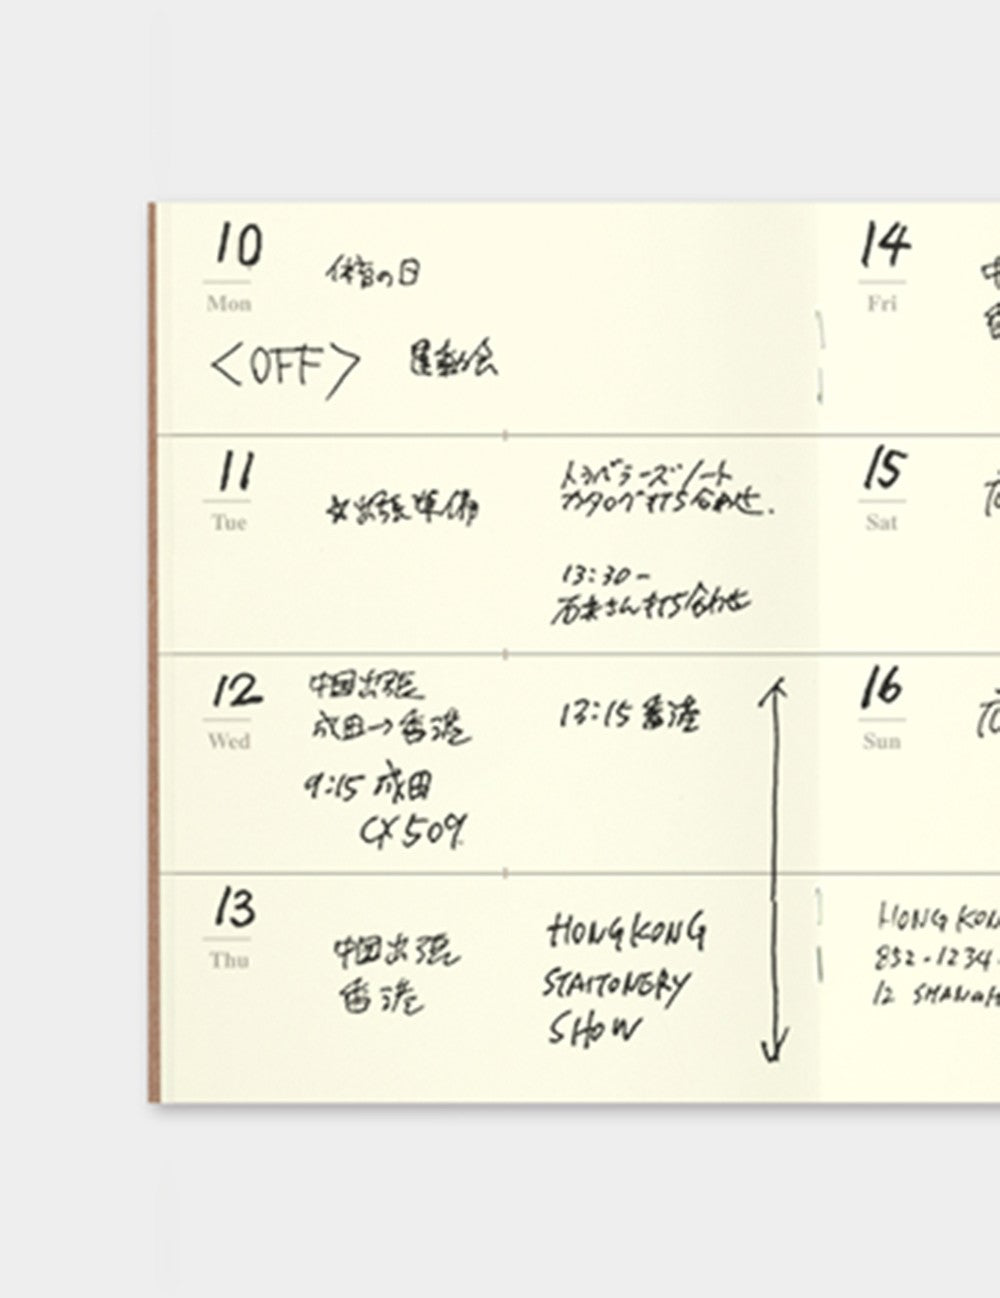 10
Mon
体育の日
<OFF> 運動会
11
Tue
出張準備
トラベラーズノート
カタログ打ち合わせ.
13:30-
さん打ち合わせ
12
Wed
中国出張
成田→香港
9:15 成田
CX509
13:15 香港
13
Thu
中国出張
香港
HONG KONG
STAITONERY
SHOW
14
Fri
中
香
15
Sat
16
Sun
HONG KON
852-1234-
12 SHANGH